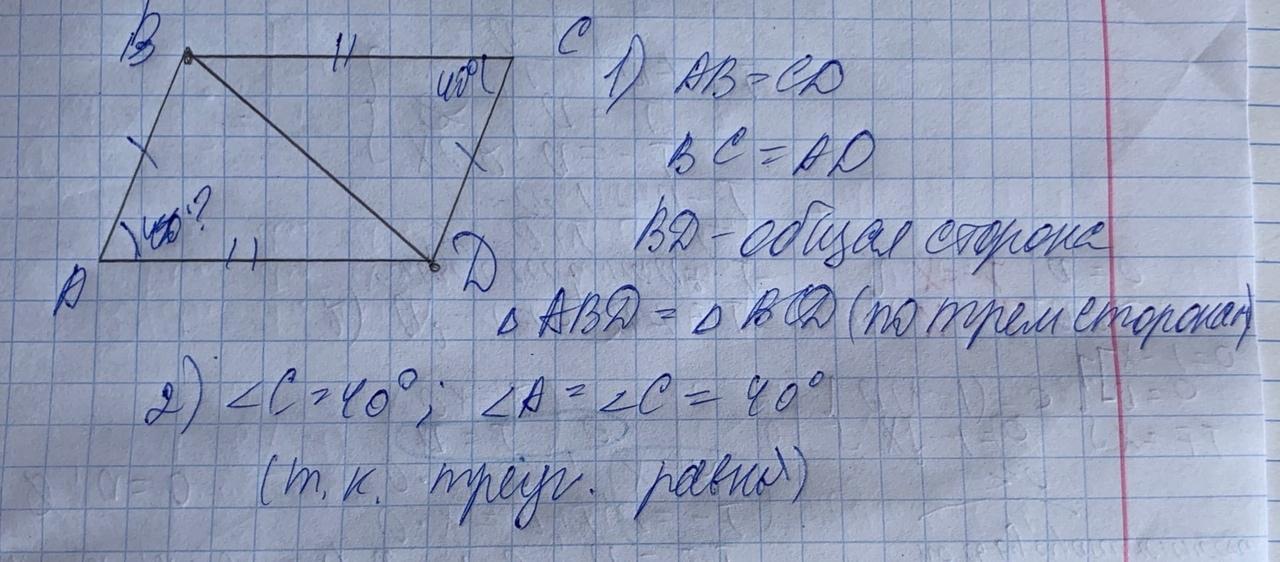 B
C
40°
A
40°?
D
1) AB = CD
BC = AD
BD - общая сторона
△ ABD = △ BCD (по трем сторонам)
2) ∠C = 40°; ∠A = ∠C = 40°
(т.к. треуг. равны)